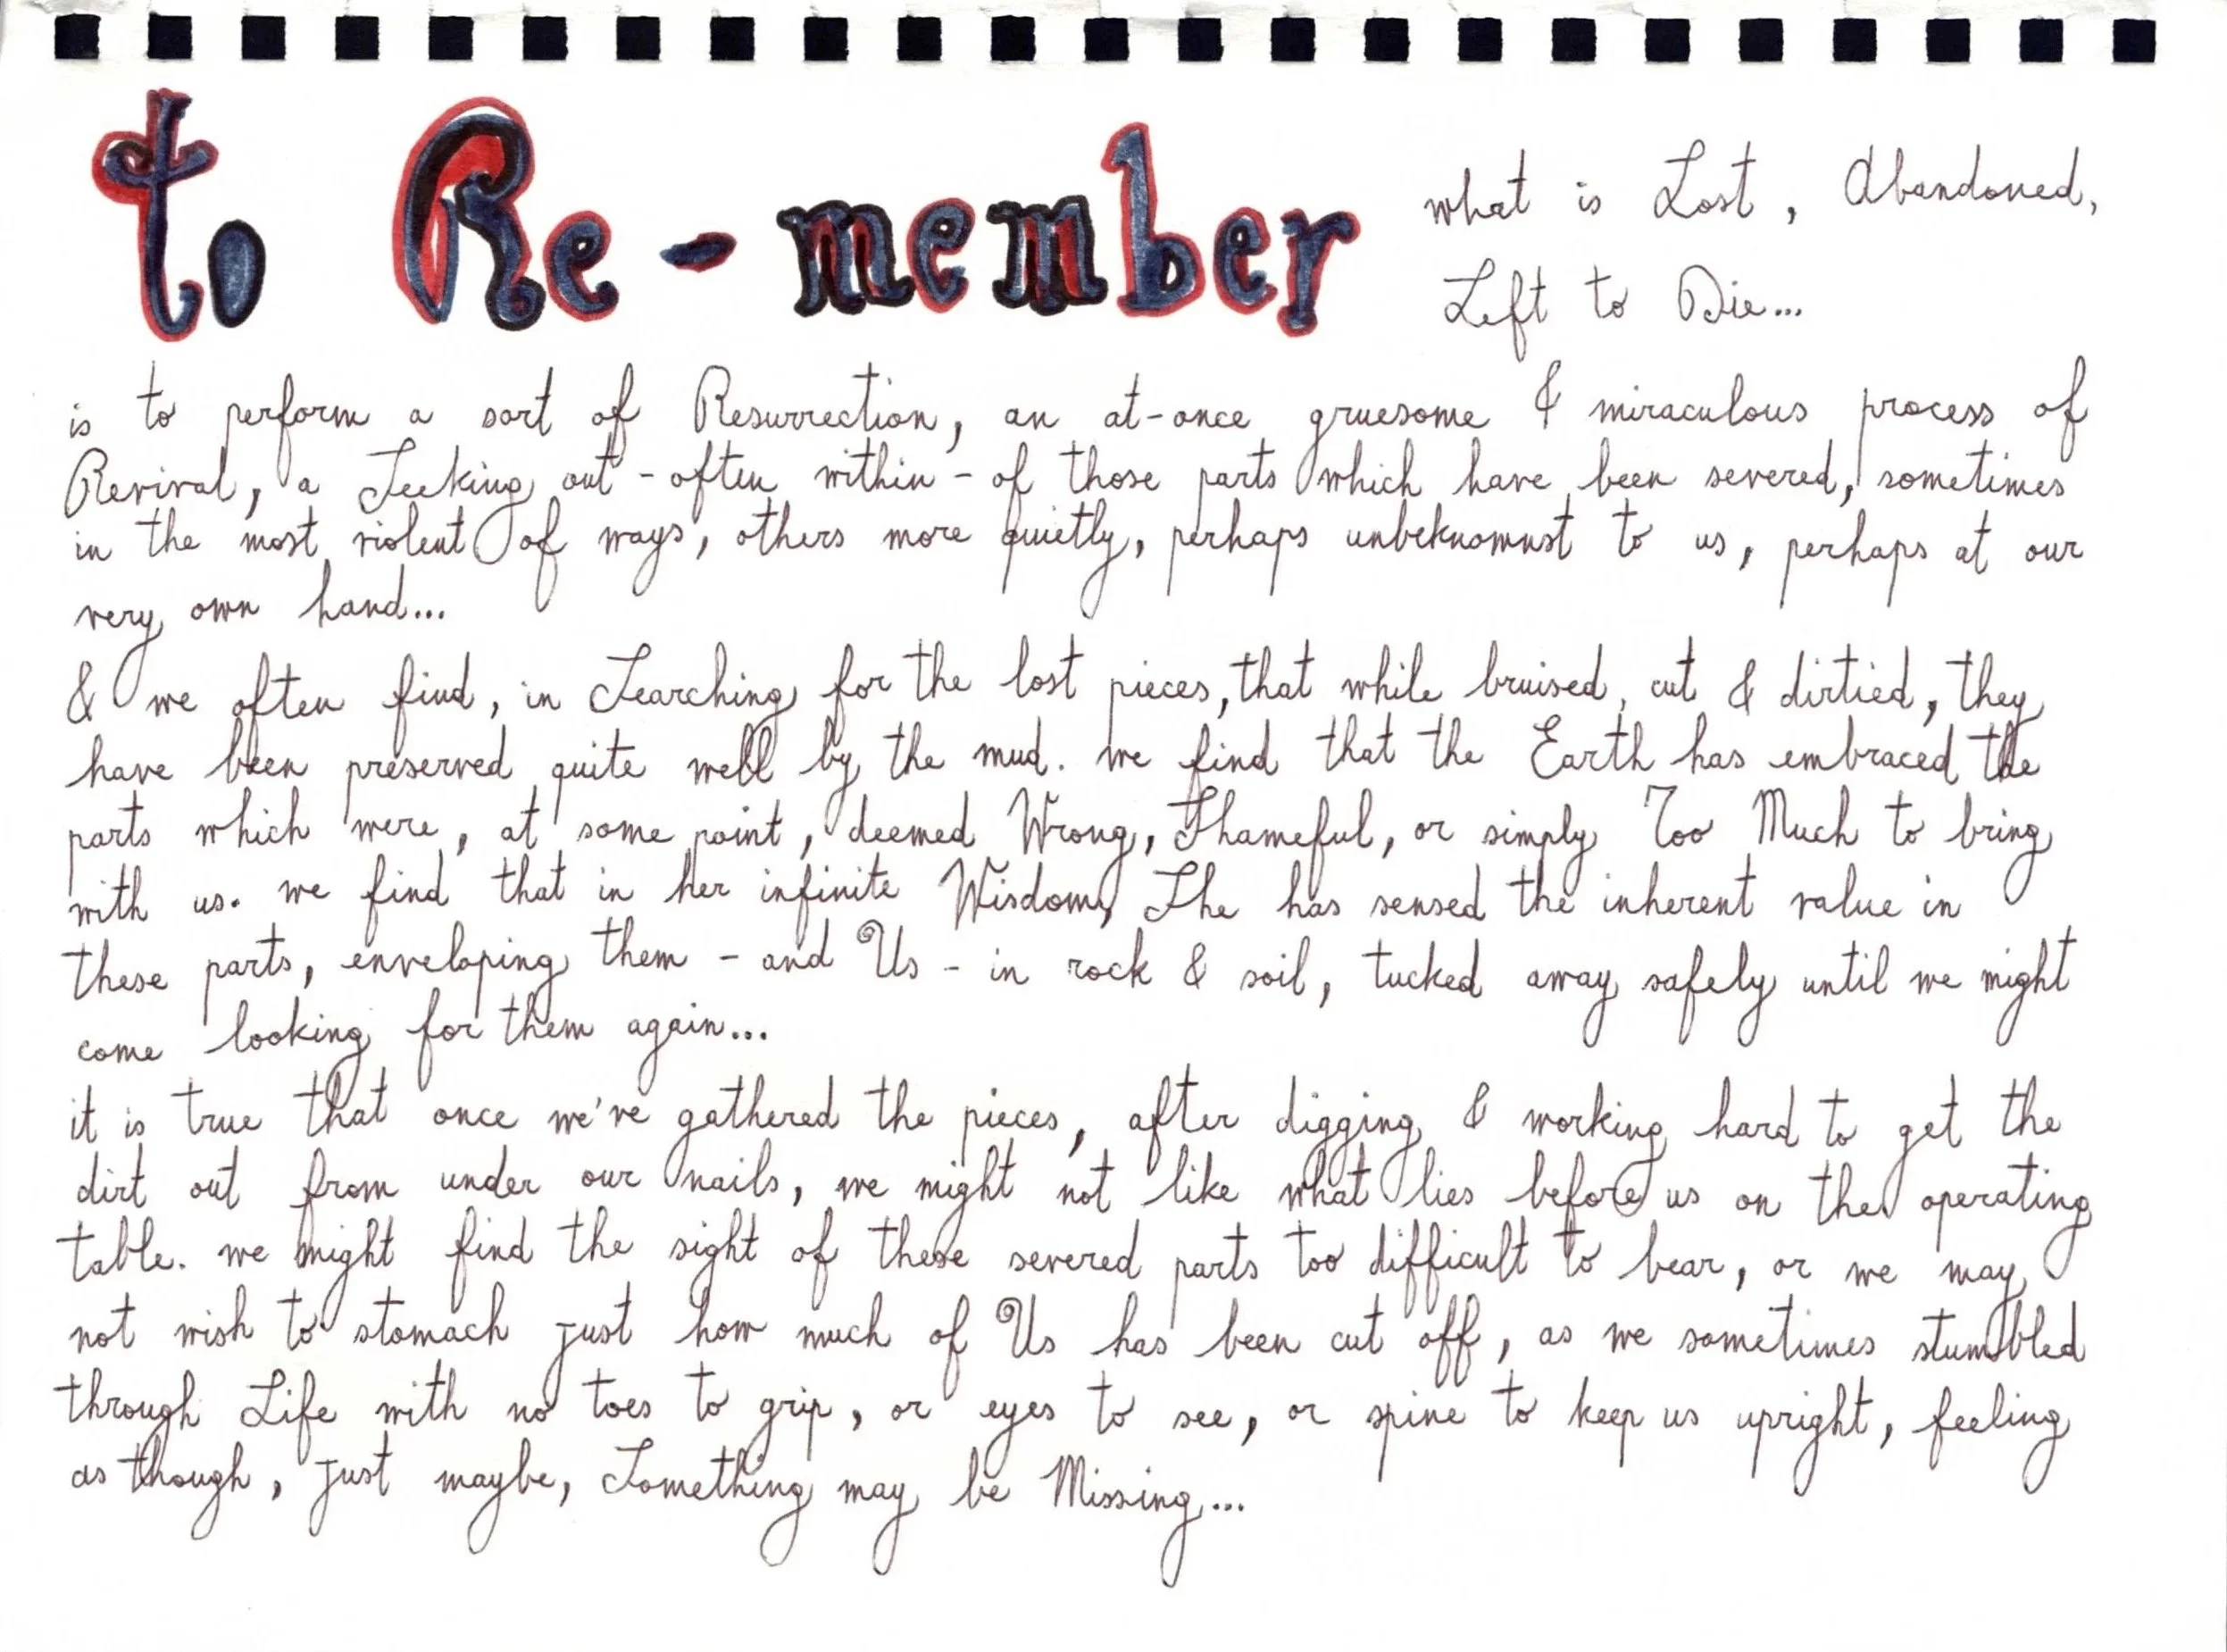 to Re-member what is Lost, Abandoned,
Left to Die...
is to perform a sort of Resurrection, an at-once gruesome & miraculous process of
Revival, a Seeking out - often within - of those parts which have been severed, sometimes
in the most violent of ways, others more quietly, perhaps unbeknownst to us, perhaps at our
very own hand...
& we often find, in Searching for the lost pieces, that while bruised, cut & dirtied, they
have been preserved quite well by the mud. we find that the Earth has embraced the
parts which were, at some point, deemed Wrong, Shameful, or simply Too Much to bring
with us. we find that in her infinite Wisdom, She has sensed the inherent value in
these parts, enveloping them - and Us - in rock & soil, tucked away safely until we might
come looking for them again...
it is true that once we've gathered the pieces, after digging & working hard to get the
dirt out from under our nails, we might not like what lies before us on the operating
table. we might find the sight of these severed parts too difficult to bear, or we may
not wish to stomach just how much of Us has been cut off, as we sometimes stumbled
through Life with no toes to grip, or eyes to see, or spine to keep us upright, feeling
as though, just maybe, Something may be Missing...